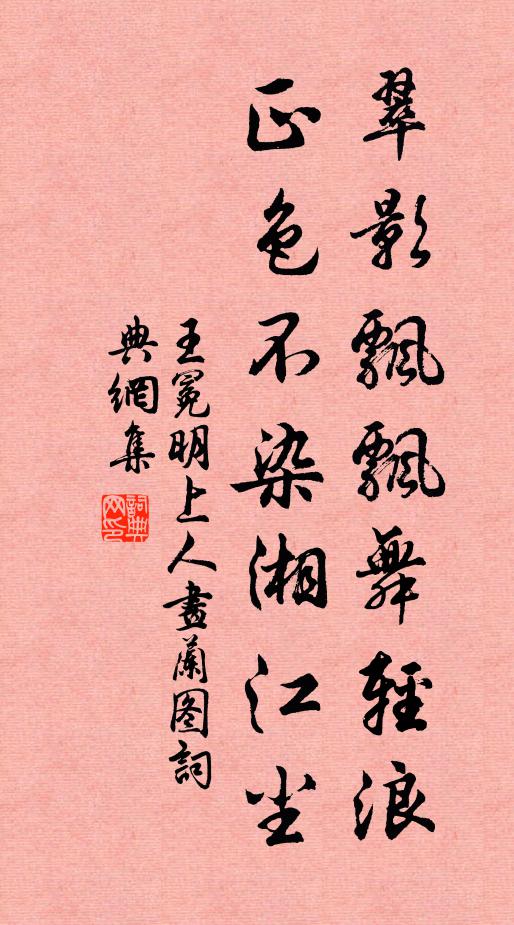 翠影飄飄舞輕浪
正色不染湘江尘
王冕明上人畫蘭图詞
典網集
詞典网印